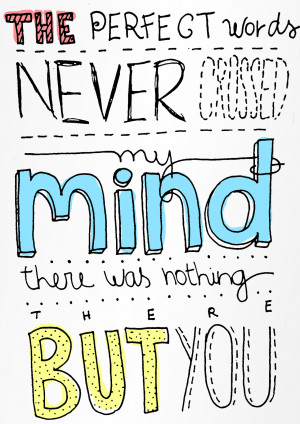 THE PERFECT words
NEVER CROSSED
my
mind
there was nothing
THERE
BUT YOU